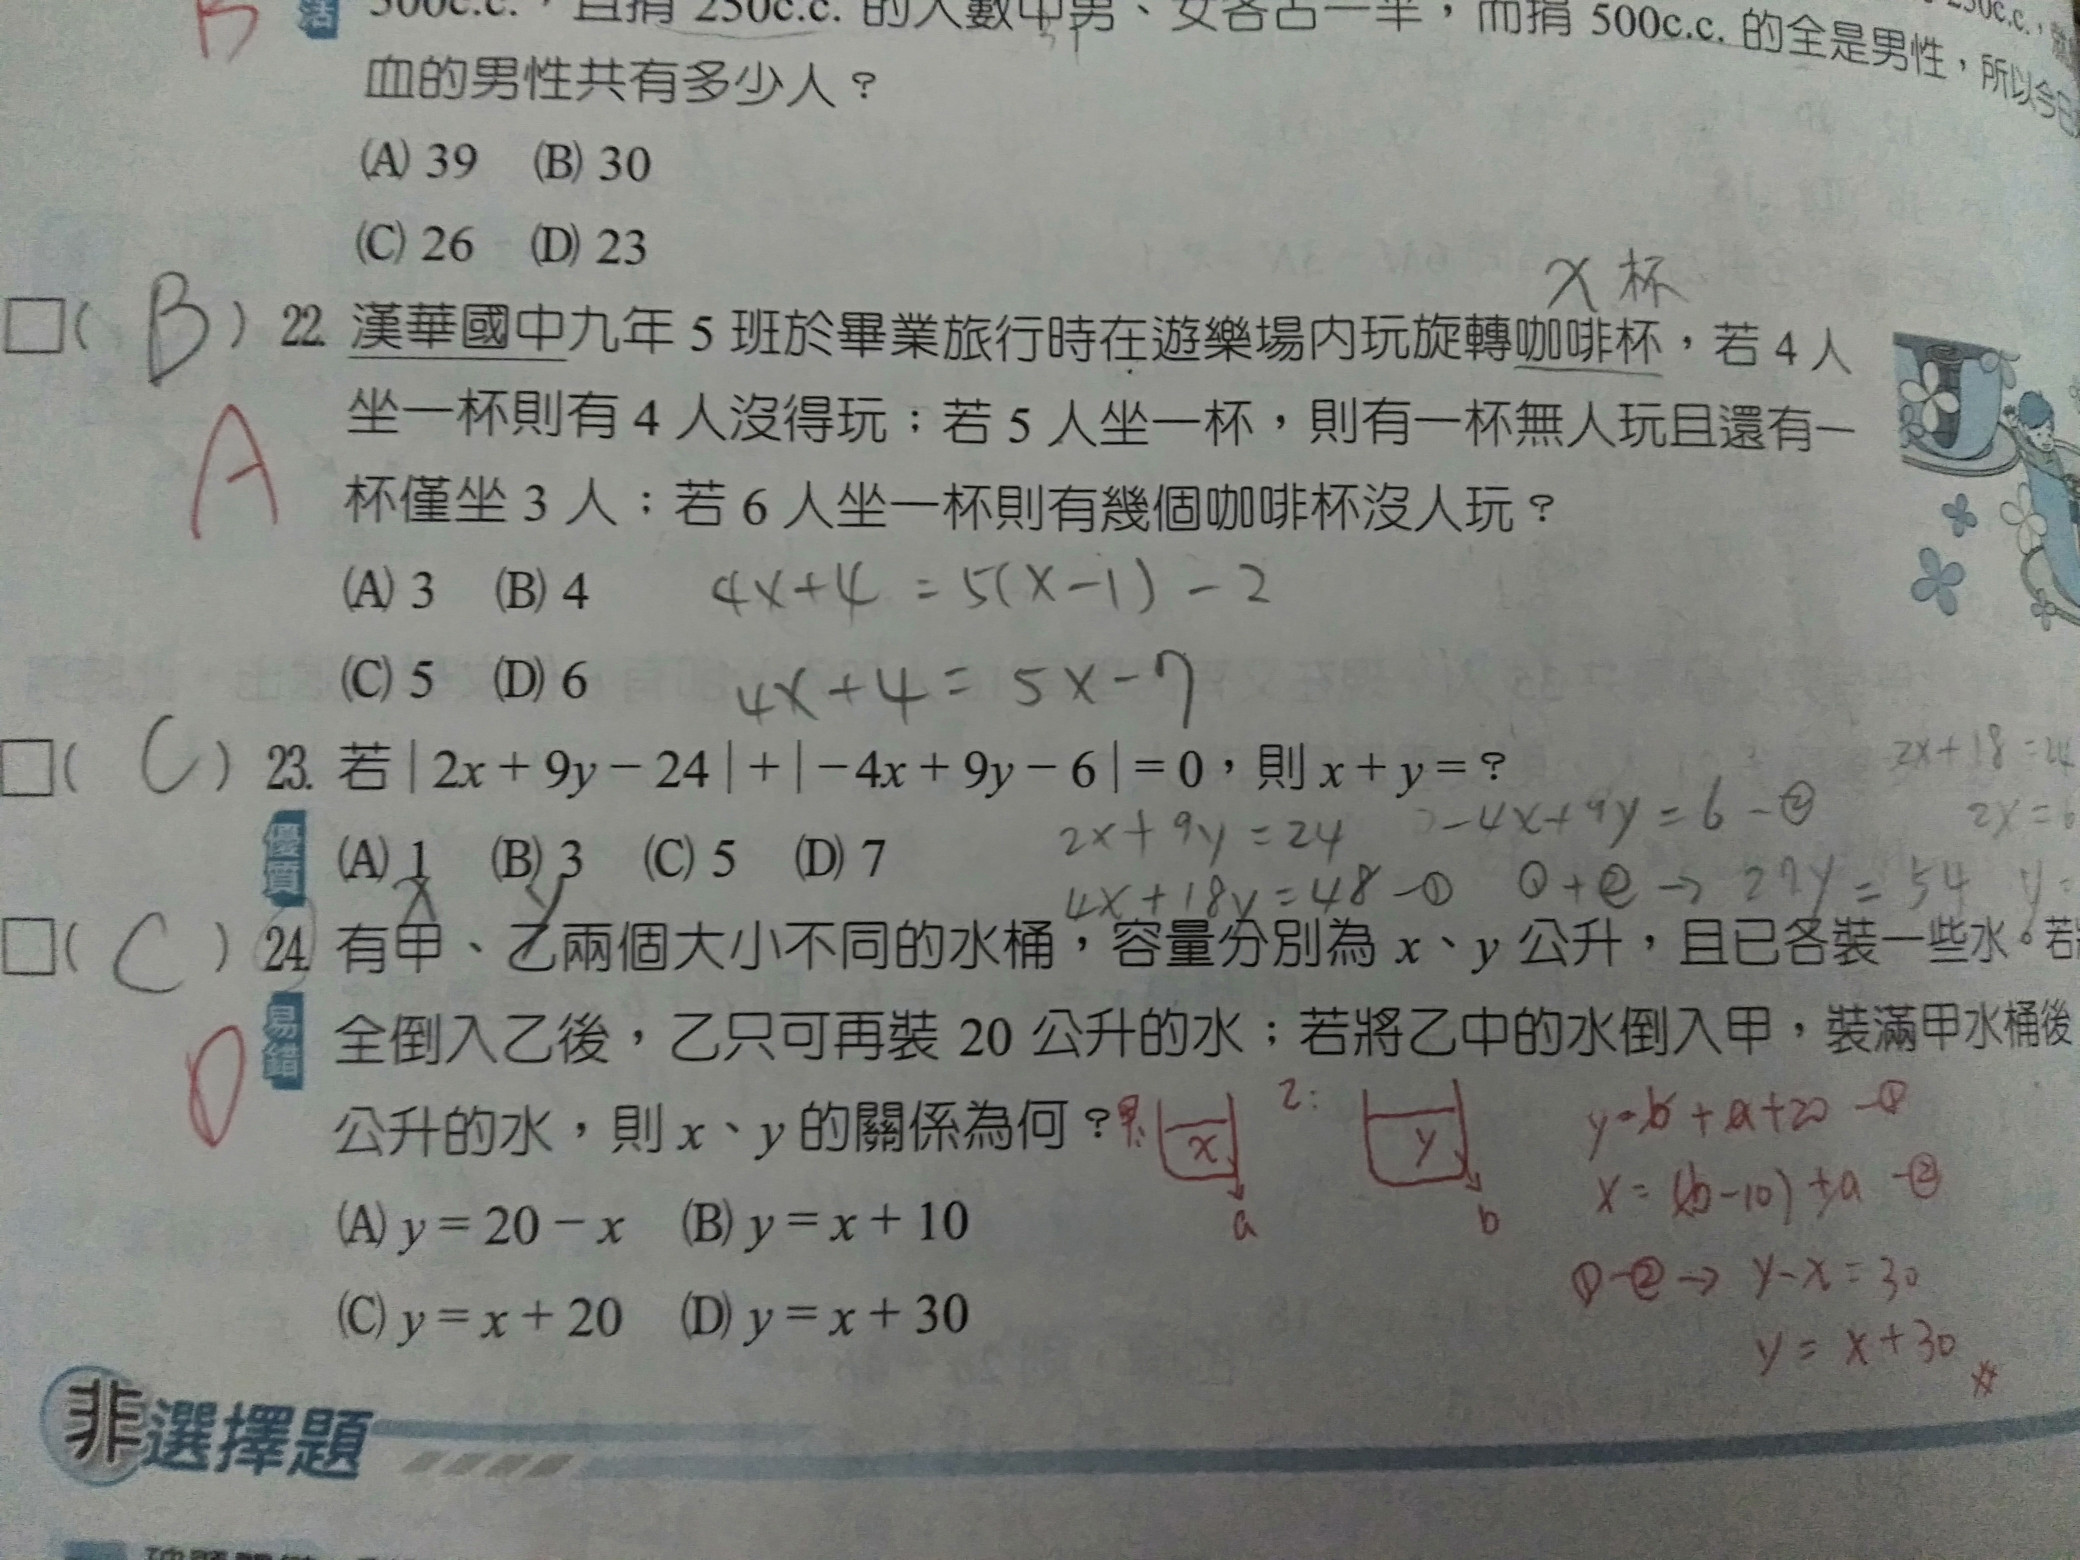 B 活 500c.c.,且捐 250c.c. 的人數中男、女各占一半,而捐 500c.c. 的全是男性,所以今日
250c.c.,
血的男性共有多少人?
(A) 39 (B) 30
(C) 26 (D) 23
x 杯
□( B ) 22. 漢華國中九年 5 班於畢業旅行時在遊樂場內玩旋轉咖啡杯,若 4 人
A 坐一杯則有 4 人沒得玩;若 5 人坐一杯,則有一杯無人玩且還有一
杯僅坐 3 人;若 6 人坐一杯則有幾個咖啡杯沒人玩?
(A) 3 (B) 4 4x+4 = 5(x-1) - 2
(C) 5 (D) 6 4x+4 = 5x-7
□( C ) 23. 若 | 2x + 9y − 24 | + | − 4x + 9y − 6 | = 0,則 x + y = ?
2x+18=24
優質 (A) 1 (B) 3 (C) 5 (D) 7 2x+9y=24 -4x+9y=6-② 2x=6
x y 4x+18y=48-① ①+②→27y=54 y=
□( C ) 24. 有甲、乙兩個大小不同的水桶,容量分別為 x、y 公升,且已各裝一些水。若
D 易錯 全倒入乙後,乙只可再裝 20 公升的水;若將乙中的水倒入甲,裝滿甲水桶後
公升的水,則 x、y 的關係為何? x a 乙: y b y=b+a+20-①
x=(b-10)+a-②
(A) y = 20 − x (B) y = x + 10
①-②→ y-x=30
(C) y = x + 20 (D) y = x + 30
y = x+30
非選擇題